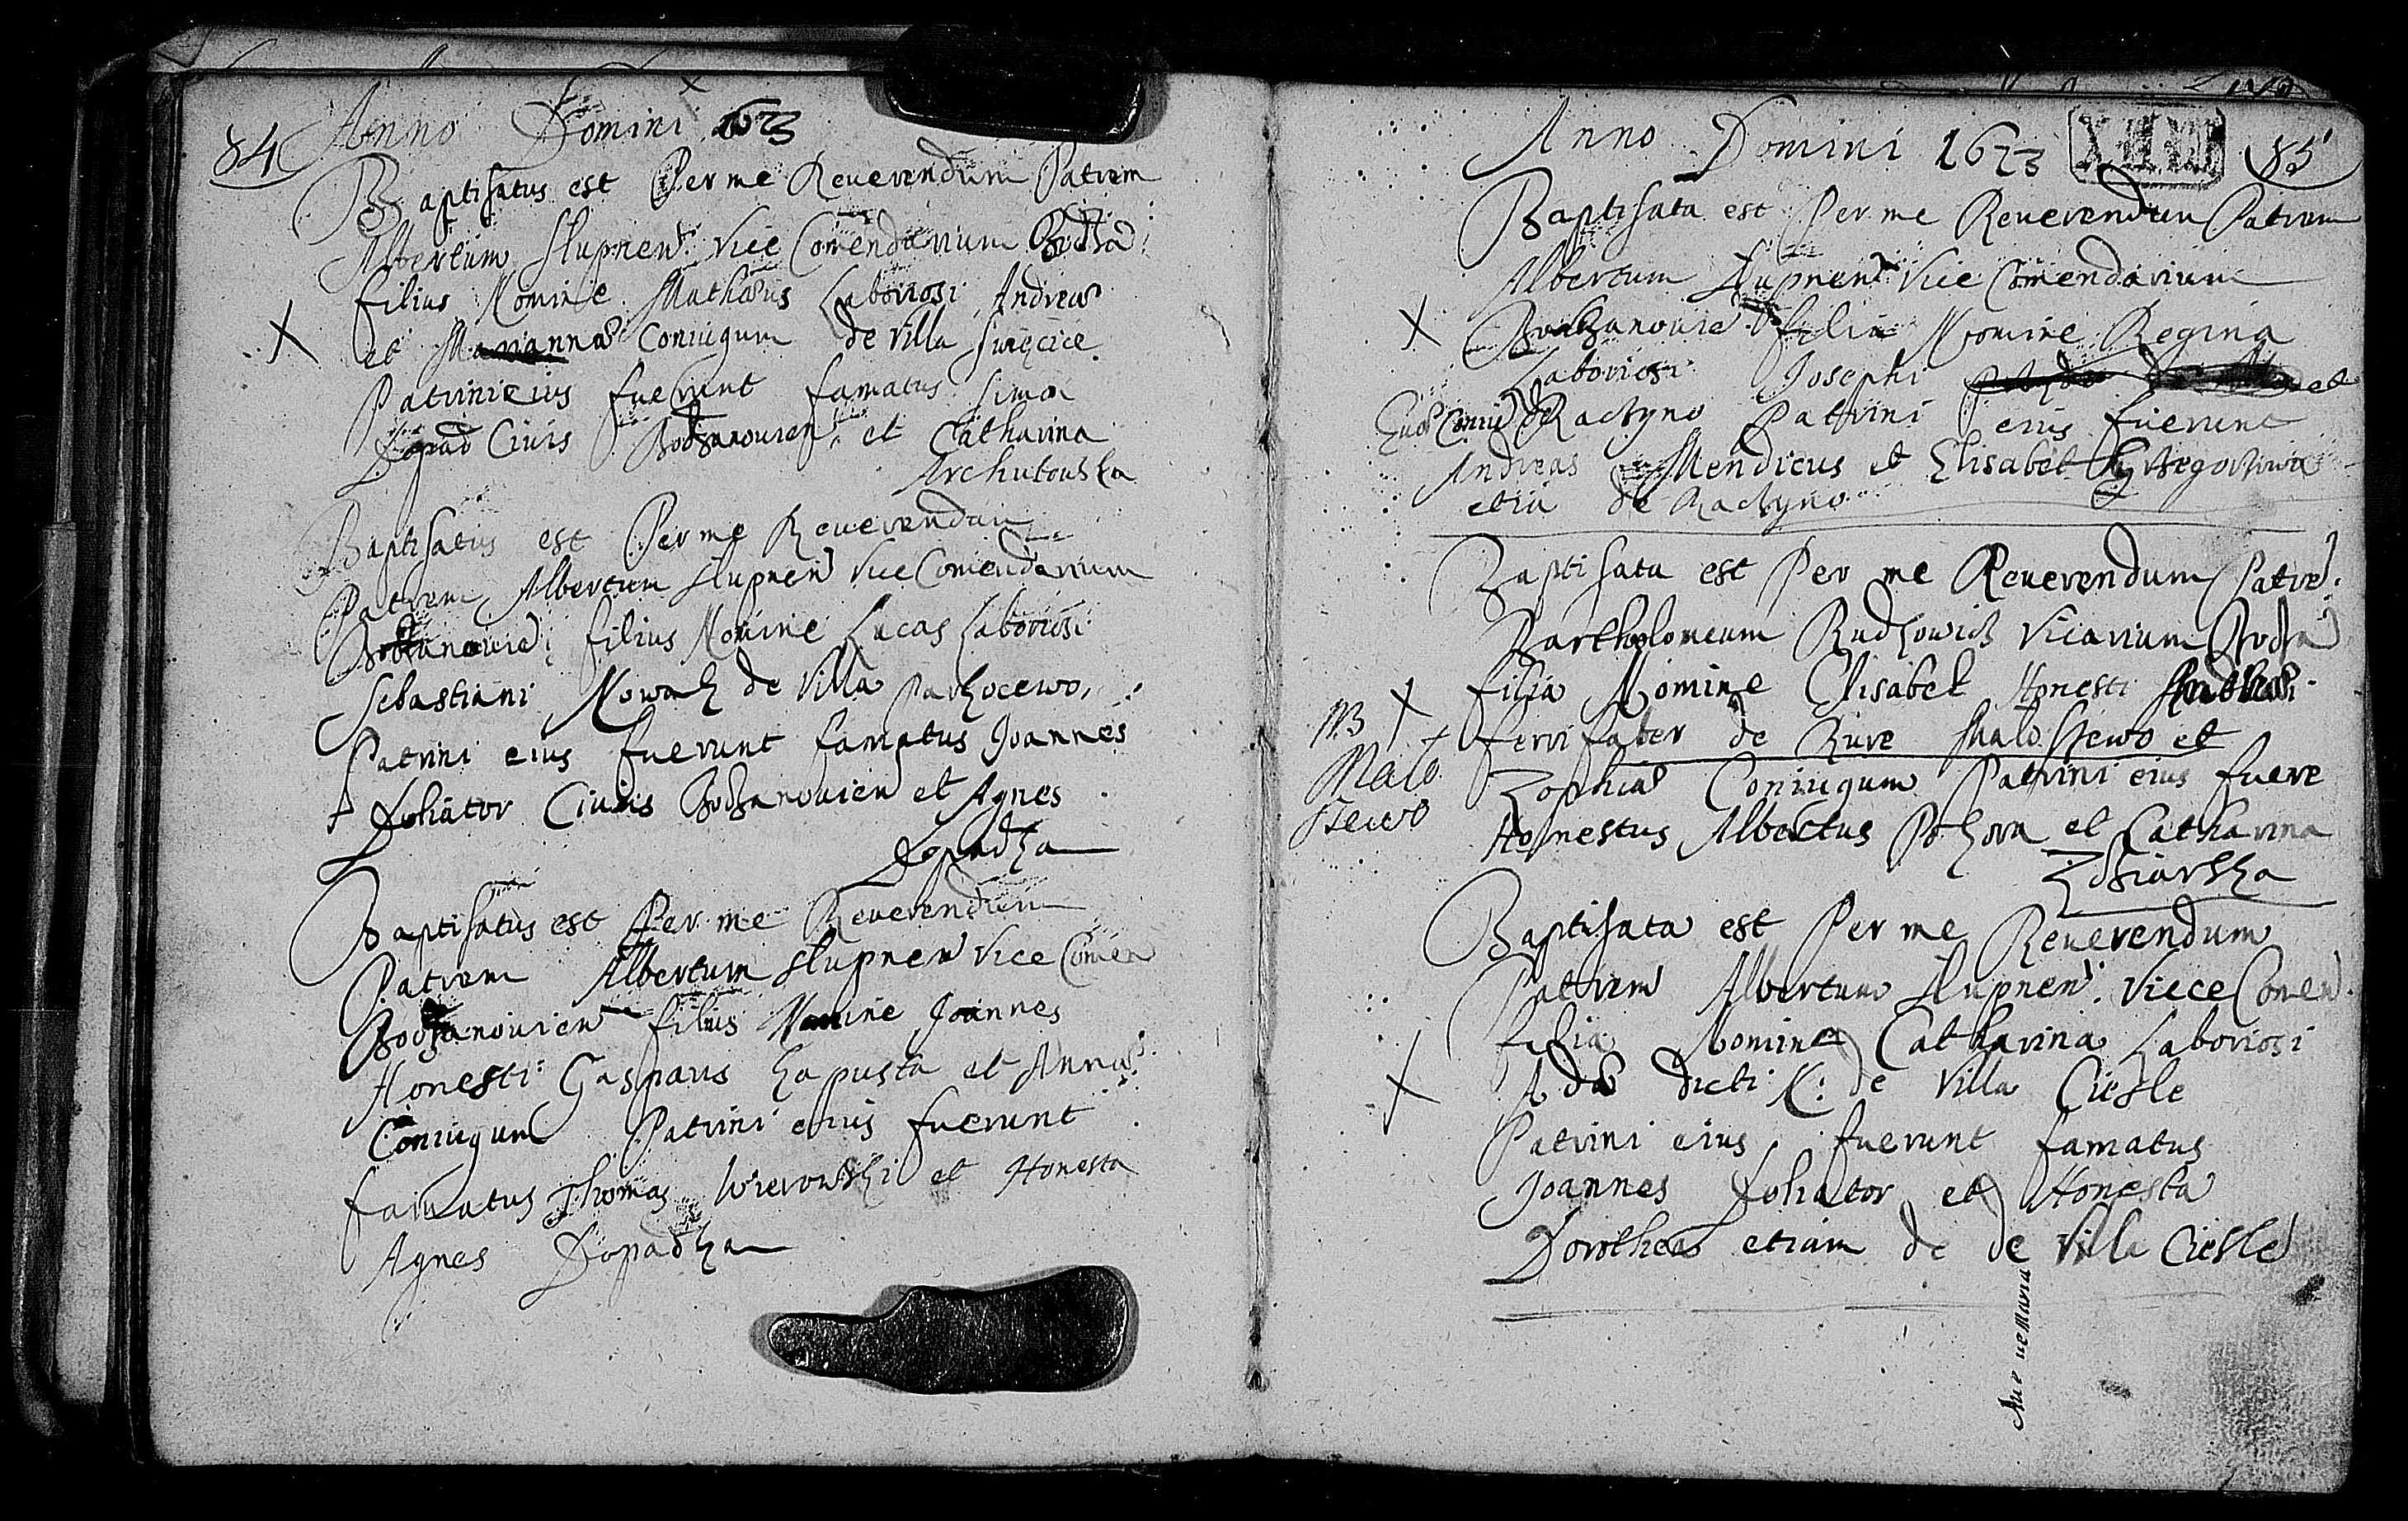 84 Anno Domini 1673
Baptisatus est Per me Reuerendum Patrem
Albertum Slupnen: Vice Comendarium Bodza:
filius Nomine Mathæus Laboriosi Andreæ
et Mariannæ Coniugum de Villa Swięcice
Patrini eius fuerunt famatus Simon
Ciuis Bodzanouien: et Catharina
Archutowska
Baptisatus est Per me Reuerendum
Patrem Albertum Slupnen Vice Comendarium
Bodzanouien: filius Nomine Lucas Laboriosi
Sebastiani Nowak de Villa Parkocewo,
Patrini eius fuerunt famatus Joannes
Foliator Ciuis Bodzanouien et Agnes
Łopadka
Baptisatus est Per me Reuerendum
Patrem Albertum Slupnen Vice Comen
Bodzanouien filius Nomine Joannes
Honesti Gasparis Kapusta et Annæ
Coniugum Patrini eius fuerunt
famatus Thomas et Honesta
Agnes Łopadka
Anno Domini 1673 85
Baptisata est Per me Reuerendum Patrem
Albertum Slupnen Vice Comendarium
Bodzanouien: filia Nomine Regina
Laboriosi Josephi et
de Raczyno Patrini eius fuerunt
Andreas Mendicus et Elisabet
etia de Raczyno
Baptisata est Per me Reuerendum Patre
Bartholomeum Rudkowicz Vicarium Bodza
filia Nomine Elisabet Honesti
ferri faber de Rure Malo Szewo et
NB
Malo
szewo
Zophiæ Coniugum Patrini eius fuere
Honestus Albertus et Catharina
Baptisata est Per me Reuerendum
Patrem Albertum Slupnen: Viece Comen
filia Nomine Catharina Laboriosi
Adæ dicti K: de Villa Ciesle
Patrini eius fuerunt famatus
Joannes Foliator et Honesta
Dorothea etiam de de Villa Ciesle